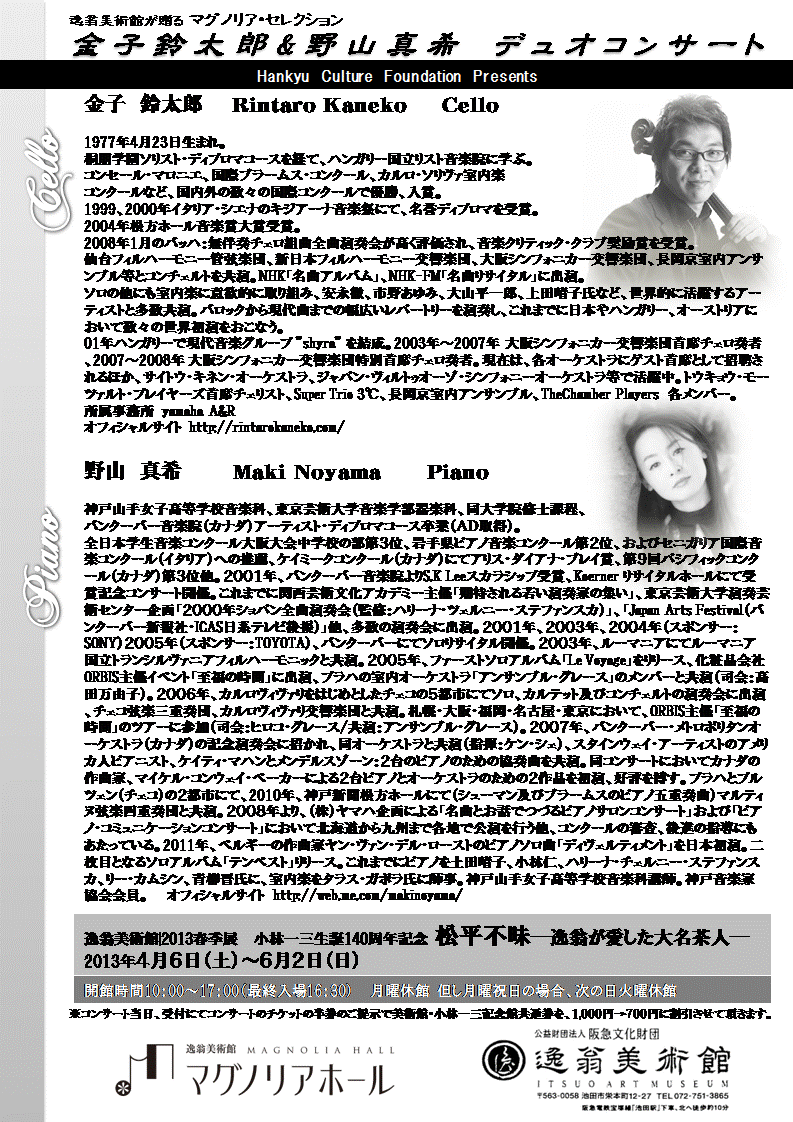 逸翁美術館が贈る マグノリア・セレクション
金子鈴太郎＆野山真希 デュオコンサート
Hankyu Culture Foundation Presents
金子 鈴太郎 Rintaro Kaneko Cello
Cello
1977年4月23日生まれ。
桐朋学園ソリスト・ディプロマコースを経て、ハンガリー国立リスト音楽院に学ぶ。
コンセール・マロニエ、国際ブラームス・コンクール、カルロ・ソリヴァ室内楽
コンクールなど、国内外の数々の国際コンクールで優勝、入賞。
1999、2000年イタリア・シエナのキジアーナ音楽祭にて、名誉ディプロマを受賞。
2004年松方ホール音楽賞大賞受賞。
2008年1月のバッハ：無伴奏チェロ組曲全曲演奏会が高く評価され、音楽クリティック・クラブ奨励賞を受賞。
仙台フィルハーモニー管弦楽団、新日本フィルハーモニー交響楽団、大阪シンフォニカー交響楽団、長岡京室内アンサ
ンブル等とコンチェルトを共演。NHK「名曲アルバム」、NHK-FM「名曲リサイタル」に出演。
ソロの他にも室内楽に意欲的に取り組み、安永徹、市野あゆみ、大山平一郎、上田晴子氏など、世界的に活躍するアー
ティストと多数共演。バロックから現代曲までの幅広いレパートリーを演奏し、これまでに日本やハンガリー、オーストリアに
おいて数々の世界初演をおこなう。
01年ハンガリーで現代音楽グループ"shyra"を結成。2003年～2007年 大阪シンフォニカー交響楽団首席チェロ奏者
、2007～2008年 大阪シンフォニカー交響楽団特別首席チェロ奏者。現在は、各オーケストラにゲスト首席として招聘さ
れるほか、サイトウ・キネン・オーケストラ、ジャパン・ヴィルトゥオーゾ・シンフォニーオーケストラ等で活躍中。トウキョウ・モー
ツァルト・プレイヤーズ首席チェリスト、Super Trio 3℃、長岡京室内アンサンブル、TheChamber Players 各メンバー。
所属事務所 yamaha A&R
オフィシャルサイト http://rintarokaneko.com/
野山 真希 Maki Noyama Piano
Piano
神戸山手女子高等学校音楽科、東京芸術大学音楽学部器楽科、同大学院修士課程、
バンクーバー音楽院（カナダ）アーティスト・ディプロマコース卒業（AD取得）。
全日本学生音楽コンクール大阪大会中学校の部第3位、岩手県ピアノ音楽コンクール第2位、およびセニガリア国際音
楽コンクール（イタリア）への推薦、ケイミークコンクール（カナダ）にてアリス・ダイアナ・プレイ賞、第9回パシフィックコンク
ール（カナダ）第3位他。2001年、バンクーバー音楽院よりS.K Leeスカラシップ受賞、Koernerリサイタルホールにて受
賞記念コンサート開催。これまでに関西芸術文化アカデミー主催「期待される若い演奏家の集い」、東京芸術大学演奏芸
術センター企画「2000年ショパン全曲演奏会（監修：ハリーナ・ツェルニー・ステファンスカ）」、「Japan Arts Festival（バ
ンクーバー新報社・ICAS日系テレビ後援）」他、多数の演奏会に出演。2001年、2003年、2004年（スポンサー：
SONY）2005年（スポンサー：TOYOTA）、バンクーバーにてソロリサイタル開催。2003年、ルーマニアにてルーマニア
国立トランシルヴァニアフィルハーモニックと共演。2005年、ファーストソロアルバム「Le Voyage」をリリース、化粧品会社
ORBIS主催イベント「至福の時間」に出演、プラハの室内オーケストラ「アンサンブル・グレース」のメンバーと共演（司会：高
田万由子）。2006年、カルロヴィヴァリをはじめとしたチェコの5都市にてソロ、カルテット及びコンチェルトの演奏会に出演
、チェコ弦楽三重奏団、カルロヴィヴァリ交響楽団と共演。札幌・大阪・福岡・名古屋・東京において、ORBIS主催「至福の
時間」のツアーに参加（司会：ヒロコ・グレース/共演：アンサンブル・グレース）。2007年、バンクーバー・メトロポリタンオ
ーケストラ（カナダ）の記念演奏会に招かれ、同オーケストラと共演（指揮：ケン・シェ）、スタインウェイ・アーティストのアメリ
カ人ピアニスト、ケイティ・マハンとメンデルスゾーン：2台のピアノのための協奏曲を共演。同コンサートにおいてカナダの
作曲家、マイケル・コンウェイ・ベーカーによる2台ピアノとオーケストラのための2作品を初演、好評を博す。プラハとプル
ツェン（チェコ）の2都市にて、2010年、神戸新聞松方ホールにて（シューマン及びブラームスのピアノ五重奏曲）マルティ
ヌ弦楽四重奏団と共演。2008年より、（株）ヤマハ企画による「名曲とお話でつづるピアノサロンコンサート」および「ピア
ノ・コミュニケーションコンサート」において北海道から九州まで各地で公演を行う他、コンクールの審査、後進の指導にも
あたっている。2011年、ベルギーの作曲家ヤン・ヴァン・デル・ローストのピアノソロ曲「ディヴェルティメント」を日本初演。二
枚目となるソロアルバム「テンペスト」リリース。これまでにピアノを土田晴子、小林仁、ハリーナ・チェルニー・ステファンス
カ、リー・カムシン、青柳晋氏に、室内楽をタラス・ガボラ氏に師事。神戸山手女子高等学校音楽科講師。神戸音楽家
協会会員。 オフィシャルサイト http://web.me.com/makinoyama/
逸翁美術館2013春季展 小林一三生誕140周年記念 松平不昧―逸翁が愛した大名茶人―
2013年4月6日（土）～6月2日（日）
開館時間10:00～17:00（最終入場16:30） 月曜休館 但し月曜祝日の場合、次の日火曜休館
※コンサート当日、受付にてコンサートのチケットの半券のご提示で美術館・小林一三記念館共通券を、1,000円→700円に割引させて頂きます。
逸翁美術館 MAGNOLIA HALL
マグノリアホール
公益財団法人 阪急文化財団
逸翁美術館
ITSUO ART MUSEUM
〒563-0058 池田市栄本町12-27 TEL 072-751-3865
阪急電鉄宝塚線「池田駅」下車、北へ徒歩約10分